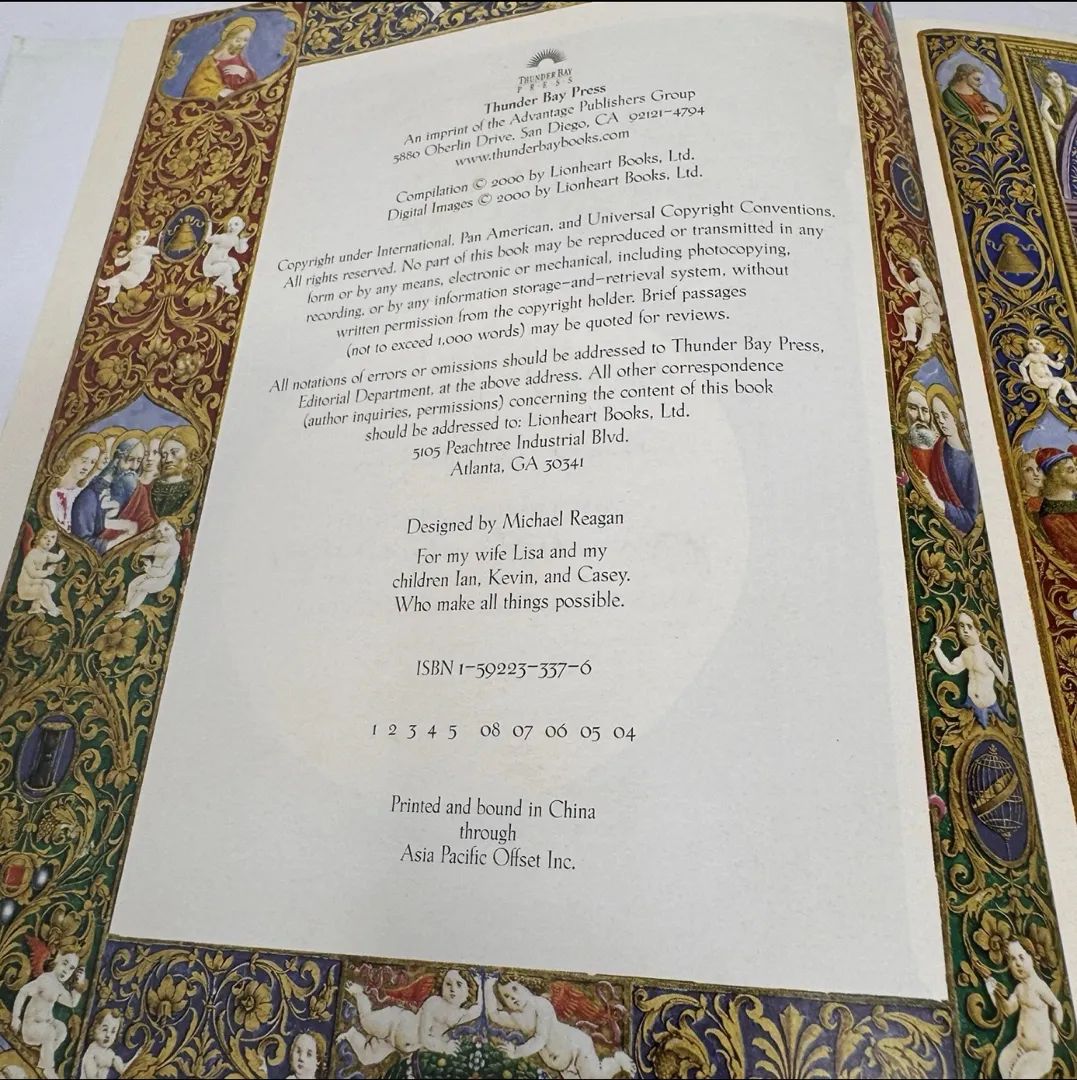 THUNDER BAY
P·R·E·S·S
Thunder Bay Press
An imprint of the Advantage Publishers Group
5880 Oberlin Drive, San Diego, CA 92121–4794
www.thunderbaybooks.com
Compilation © 2000 by Lionheart Books, Ltd.
Digital Images © 2000 by Lionheart Books, Ltd.
Copyright under International, Pan American, and Universal Copyright Conventions.
All rights reserved. No part of this book may be reproduced or transmitted in any
form or by any means, electronic or mechanical, including photocopying,
recording, or by any information storage–and–retrieval system, without
written permission from the copyright holder. Brief passages
(not to exceed 1,000 words) may be quoted for reviews.
All notations of errors or omissions should be addressed to Thunder Bay Press,
Editorial Department, at the above address. All other correspondence
(author inquiries, permissions) concerning the content of this book
should be addressed to: Lionheart Books, Ltd.
5105 Peachtree Industrial Blvd.
Atlanta, GA 30341
Designed by Michael Reagan
For my wife Lisa and my
children Ian, Kevin, and Casey.
Who make all things possible.
ISBN 1–59223–337–6
1 2 3 4 5 08 07 06 05 04
Printed and bound in China
through
Asia Pacific Offset Inc.